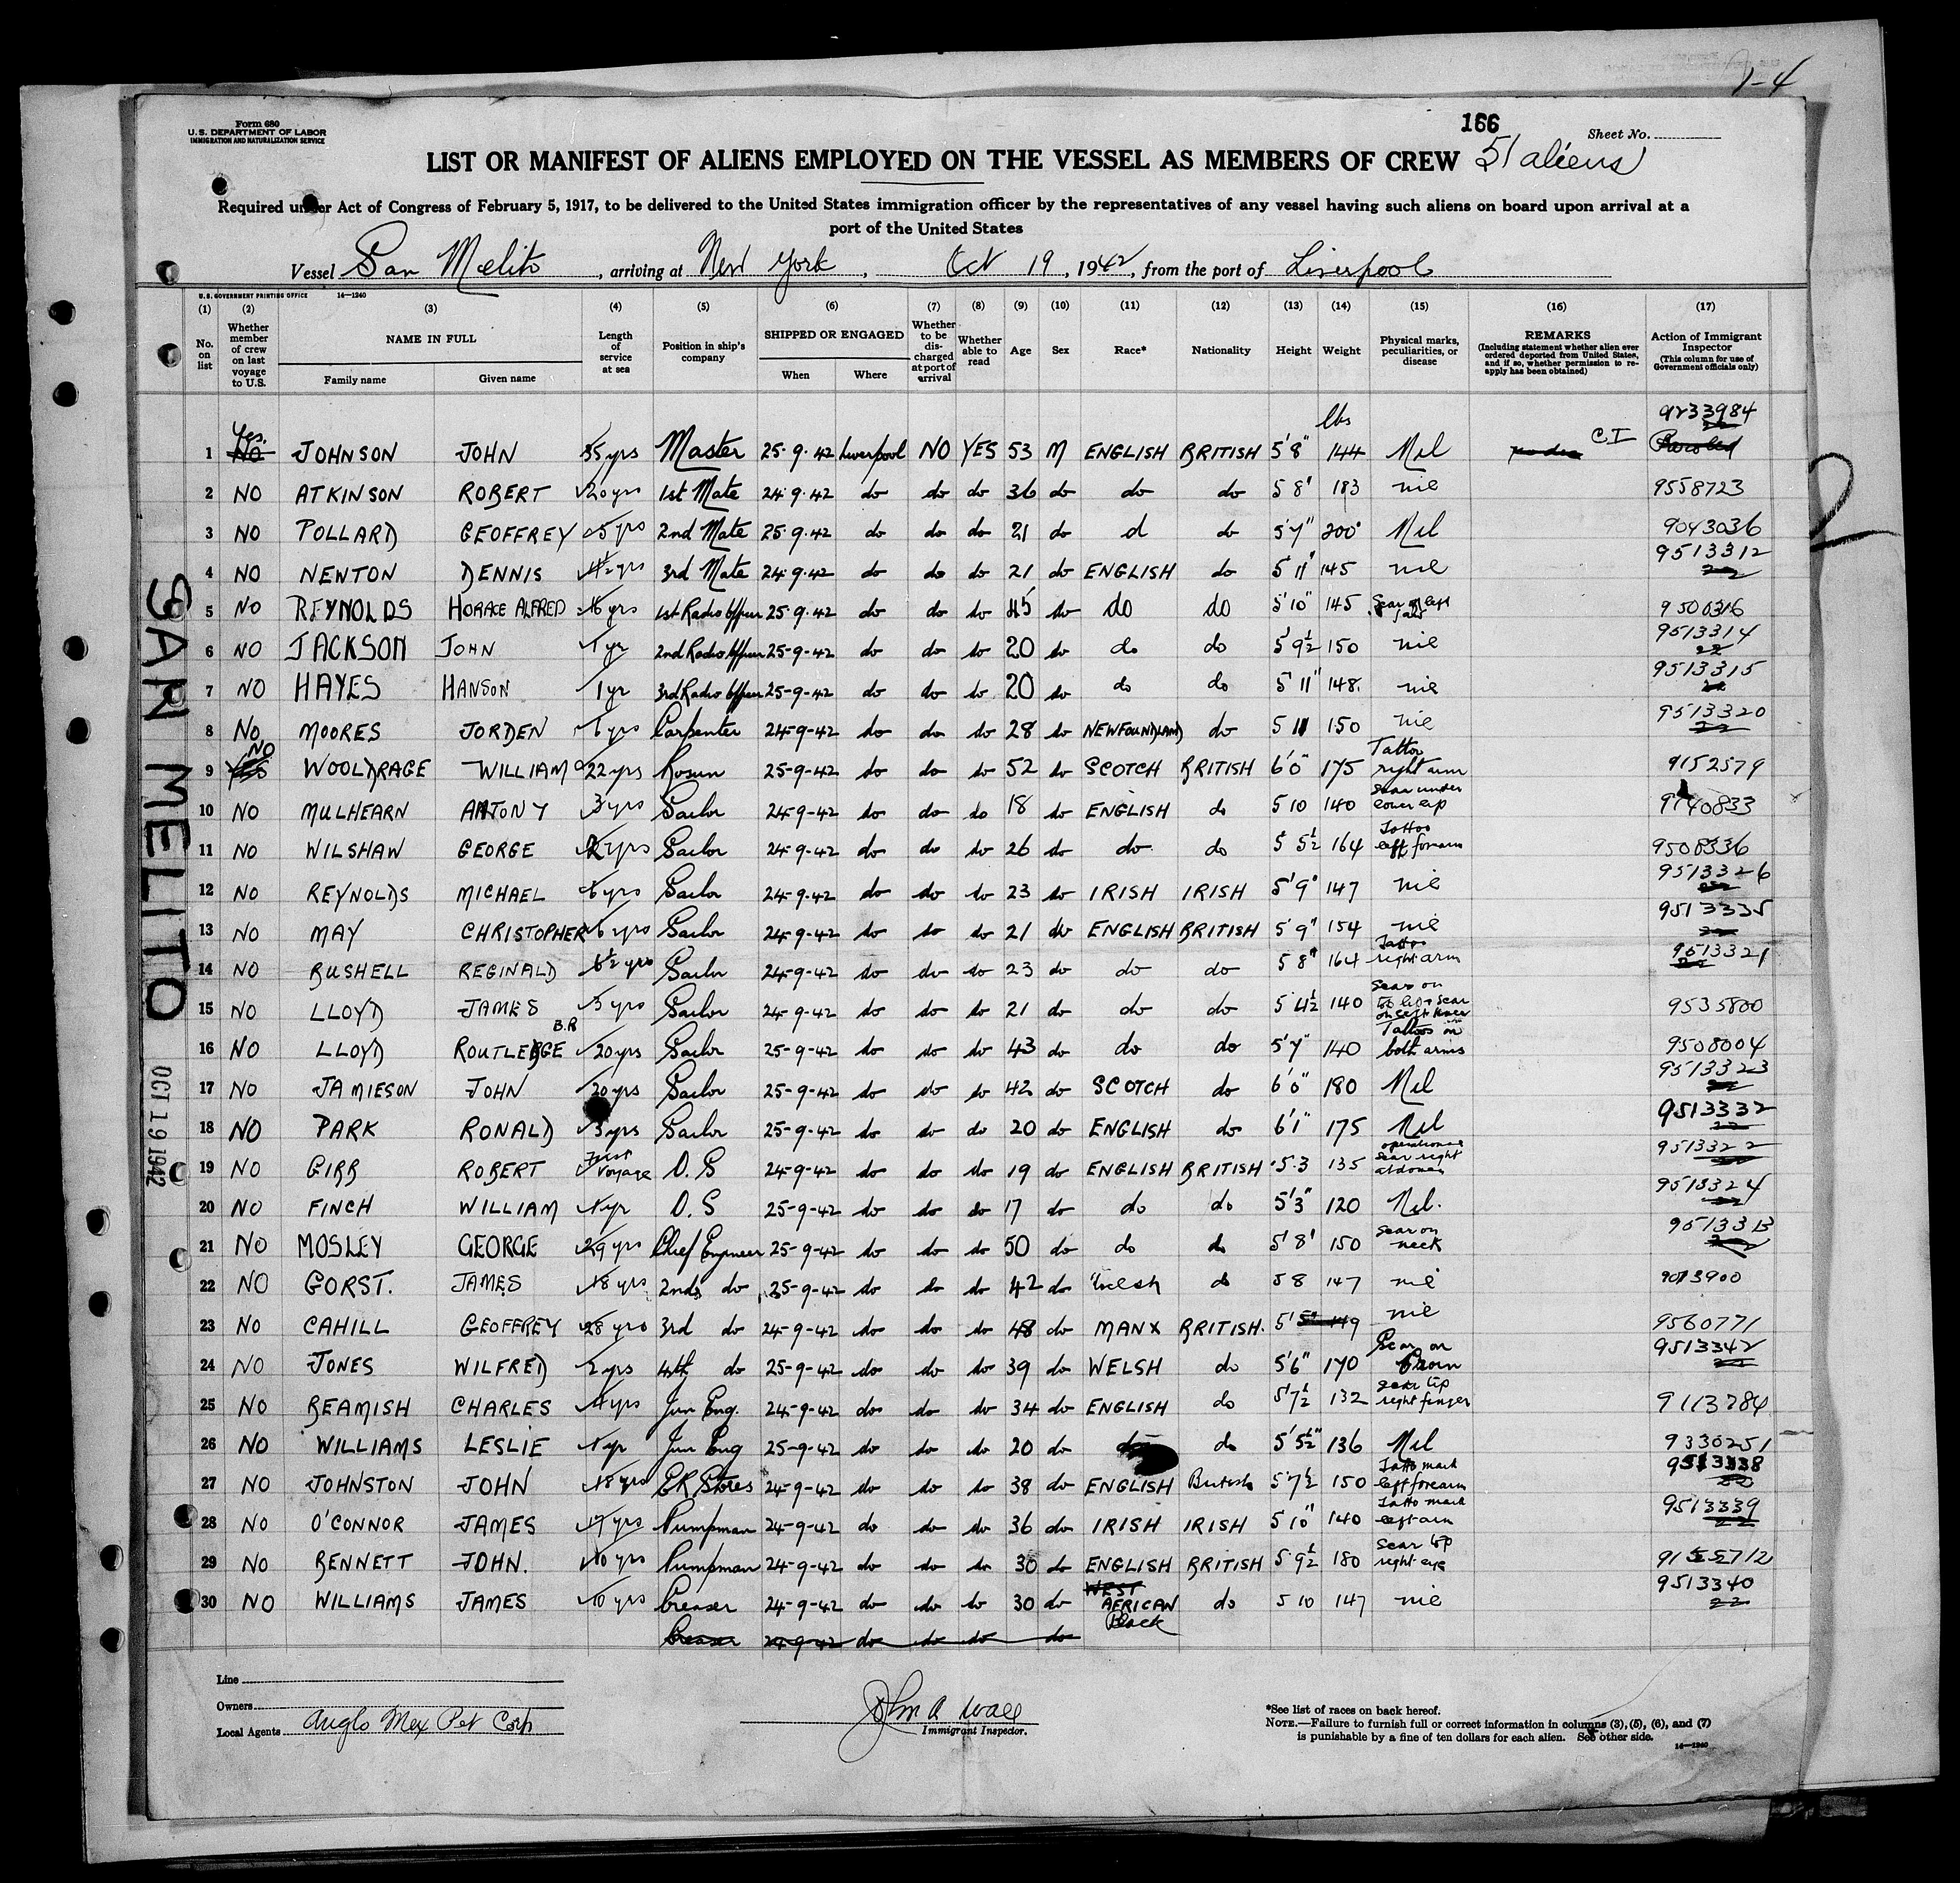 1-4
Form 680
U.S. DEPARTMENT OF LABOR
IMMIGRATION AND NATURALIZATION SERVICE
166
Sheet No.
LIST OR MANIFEST OF ALIENS EMPLOYED ON THE VESSEL AS MEMBERS OF CREW 51 aliens
Required under Act of Congress of February 5, 1917, to be delivered to the United States immigration officer by the representatives of any vessel having such aliens on board upon arrival at a
port of the United States
Vessel San Melito, arriving at New York, Oct 19, 1942, from the port of Liverpool
U.S. GOVERNMENT PRINTING OFFICE 14—1240
(1) (2) (3) (4) (5) (6) (7) (8) (9) (10) (11) (12) (13) (14) (15) (16) (17)
No. on list Whether member of crew on last voyage to U.S. NAME IN FULL Family name Given name Length of service at sea Position in ship's company SHIPPED OR ENGAGED When Where Whether to be discharged at port of arrival Whether able to read Age Sex Race* Nationality Height Weight Physical marks, peculiarities, or disease REMARKS (Including statement whether alien ever ordered deported from United States, and if so, whether permission to reapply has been obtained) Action of Immigrant Inspector (This column for use of Government officials only)
lbs 9233984
Yes.
1 NO JOHNSON JOHN 35 yrs Master 25.9.42 Liverpool NO YES 53 M ENGLISH BRITISH 5'8" 144 Nil C.I
2 NO ATKINSON ROBERT 20 yrs 1st Mate 24.9.42 do do do 36 do do do 5 8" 183 nil 9558723
3 NO POLLARD GEOFFREY 5 yrs 2nd Mate 25.9.42 do do do 21 do d do 5'7" 200 Nil 9043036
4 NO NEWTON DENNIS 4½ yrs 3rd Mate 24.9.42 do do do 21 do ENGLISH do 5'11" 145 nil 9513312
5 NO REYNOLDS HORACE ALFRED 16 yrs 1st Radio Officer 25.9.42 do do do 45 do do do 5'10" 145 Scar left 9500316
6 NO JACKSON JOHN 1 yr 2nd Radio Officer 25-9-42 do do do 20 do do do 5 9½ 150 nil 9513314
7 NO HAYES HANSON 1 yr 3rd Radio Officer 25-9-42 do do do 20 do do do 5'11" 148. nil 9513315
8 NO MOORES JORDEN 6 yrs Carpenter 24-9-42 do do do 28 do NEWFOUNDLAND do 5 11 150 nil 9513320
NO
9 YES WOOLDRAGE WILLIAM 22 yrs Bosun 25-9-42 do do do 52 do SCOTCH BRITISH 6'0" 175 Tattoo right arm 9152579
10 NO MULHEARN ANTONY 3 yrs Sailor 24-9-42 do do do 18 do ENGLISH do 5 10 140 Scar under lower lip 9740833
11 NO WILSHAW GEORGE yrs Sailor 24-9-42 do do do 26 do do do 5 5½ 164 Tattoo left forearm 9508336
12 NO REYNOLDS MICHAEL 6 yrs Sailor 24-9-42 do do do 23 do IRISH IRISH 5'9" 147 nil 9513326
13 NO MAY CHRISTOPHER 6 yrs Sailor 24-9-42 do do do 21 do ENGLISH BRITISH 5'9" 154 nil 9513335
14 NO BUSHELL REGINALD 6½ yrs Sailor 24-9-42 do do do 23 do do do 5 8" 164 Tattoo right arm 9513321
15 NO LLOYD JAMES 5 yrs Sailor 24-9-42 do do do 21 do do do 5 4½ 140 Scar on scar on left knee 9535800
B.R
16 NO LLOYD ROUTLEDGE 20 yrs Sailor 25-9-42 do do do 43 do do do 5'7" 140 Tattoos on both arms 9508004
17 NO JAMIESON JOHN 20 yrs Sailor 25-9-42 do do do 42 do SCOTCH do 6'0" 180 Nil 9513323
18 NO PARK RONALD 3 yrs Sailor 25-9-42 do do do 20 do ENGLISH do 6'1" 175 Nil 9513332
19 NO GIBB ROBERT First Voyage O.S 24-9-42 do do do 19 do ENGLISH BRITISH 5.3 135 operational scar right abdomen 9513322
20 NO FINCH WILLIAM 1 yr O.S 25-9-42 do do do 17 do do do 5'3" 120 Nil. 9513324
21 NO MOSLEY GEORGE 29 yrs Chief Engineer 25-9-42 do do do 50 do do do 5'8" 150 Scar on neck 9513313
22 NO GORST. JAMES 18 yrs 2nd do 25-9-42 do do do 42 do Welsh do 5 8 147 nil 9073900
23 NO CAHILL GEOFFREY 28 yrs 3rd do 24-9-42 do do do 48 do MANX BRITISH. 5'5" 149 nil 9560771
24 NO JONES WILFRED 2 yrs 4th do 25-9-42 do do do 39 do WELSH do 5'6" 170 Scar on Groin 9513342
25 NO BEAMISH CHARLES 4 yrs Jun Eng. 24-9-42 do do do 34 do ENGLISH do 5'7½ 132 scar tip right finger 9113784
26 NO WILLIAMS LESLIE 1 yr Jun Eng 25-9-42 do do do 20 do do do 5'5½" 136 Nil 9330251
27 NO JOHNSTON JOHN 18 yrs ER Stores 24-9-42 do do do 38 do ENGLISH British 5'7½ 150 Tatto mark left forearm 9513338
28 NO O'CONNOR JAMES 17 yrs Pumpman 24-9-42 do do do 36 do IRISH IRISH 5 10" 140 Tatto mark left arm 9513339
29 NO BENNETT JOHN. 10 yrs Pumpman 24-9-42 do do do 30 do ENGLISH BRITISH 5 9½ 180 scar top right eye 9155712
30 NO WILLIAMS JAMES 10 yrs Greaser 24-9-42 do do do 30 do WEST AFRICAN Black do 5 10 147 nil 9513340
Greaser 24-9-42 do do do do
SAN MELITO
OCT 19 1942
2
Line
Owners
Local Agents Anglo Mex Pet Corp
John A Wall
Immigrant Inspector.
*See list of races on back hereof.
NOTE.—Failure to furnish full or correct information in columns (3), (5), (6), and (7)
is punishable by a fine of ten dollars for each alien. See other side.
14—1240